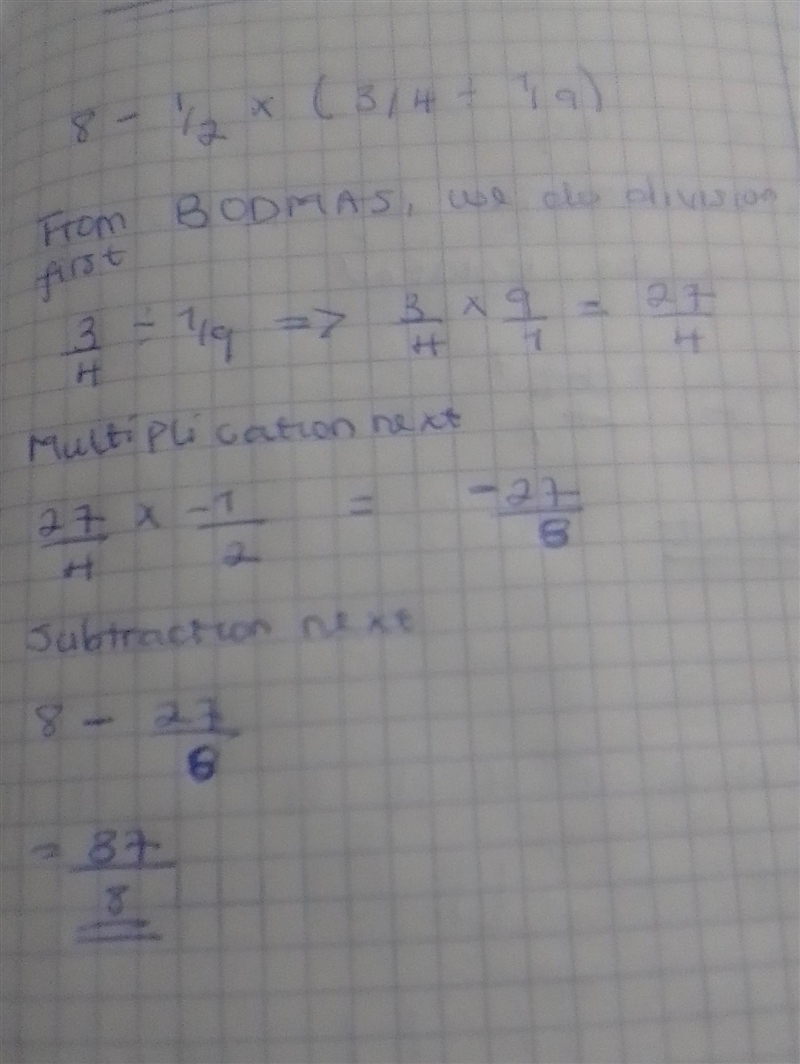 8 - 1/2 × (3/4 ÷ 1/9)
From BODMAS, we do division
first
3/4 ÷ 1/9 => 3/4 × 9/1 = 27/4
Multiplication next
27/4 × -1/2 = -27/8
Subtraction next
8 - 27/8
= 37/8